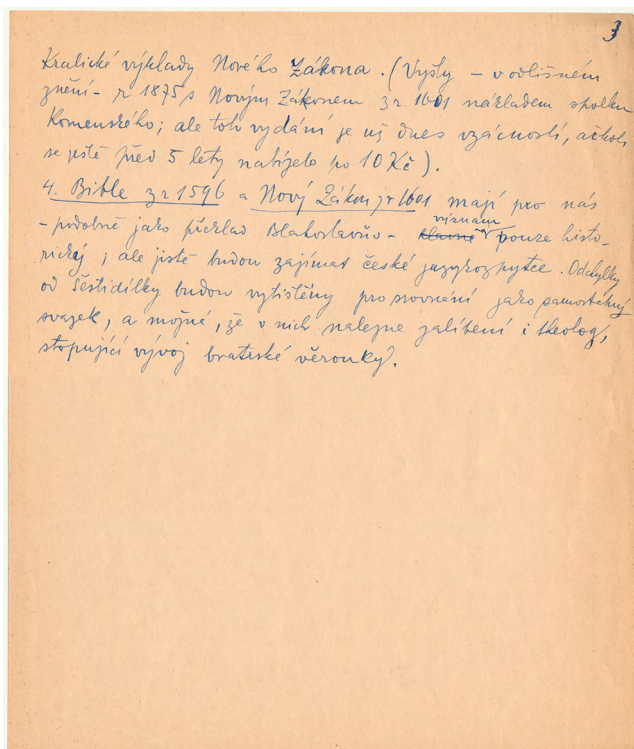 3
Kralické výklady Nového Zákona. (Vyšly – v odlišném
znění – r 1875 s Novým Zákonem z r. 1601 nákladem spolku
Komenského; ale toto vydání je už dnes vzácností, ačkoli
se ještě před 5 lety nabízelo po 10 Kč).
4. Bible z r 1596 a Nový Zákon z r 1601 mají pro nás
– podobně jako překlad Blahoslavův – hlavně význam pouze histo-
rický; ale jistě budou zajímat české jazykozpytce. Odchylky
od šestidílky budou vytištěny pro srovnání jako samostatný
svazek, a možná, že v nich nalezne zalíbení i theolog,
stopující vývoj bratrské věrouky.